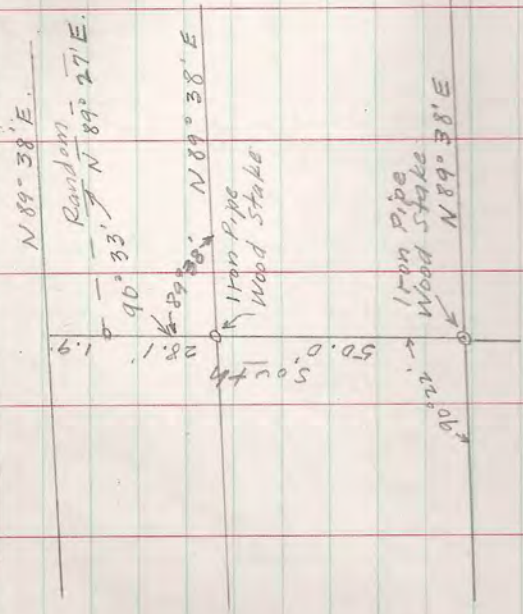 N 89° 38' E.
Random
N 89° 27' E.
90° 33'
1.9.
N 89° 38' E
89° 38'
28.1'
Iron Pipe
Wood Stake
South
50.0'
Iron Pipe
Wood Stake
N 89° 38' E
90° 22'